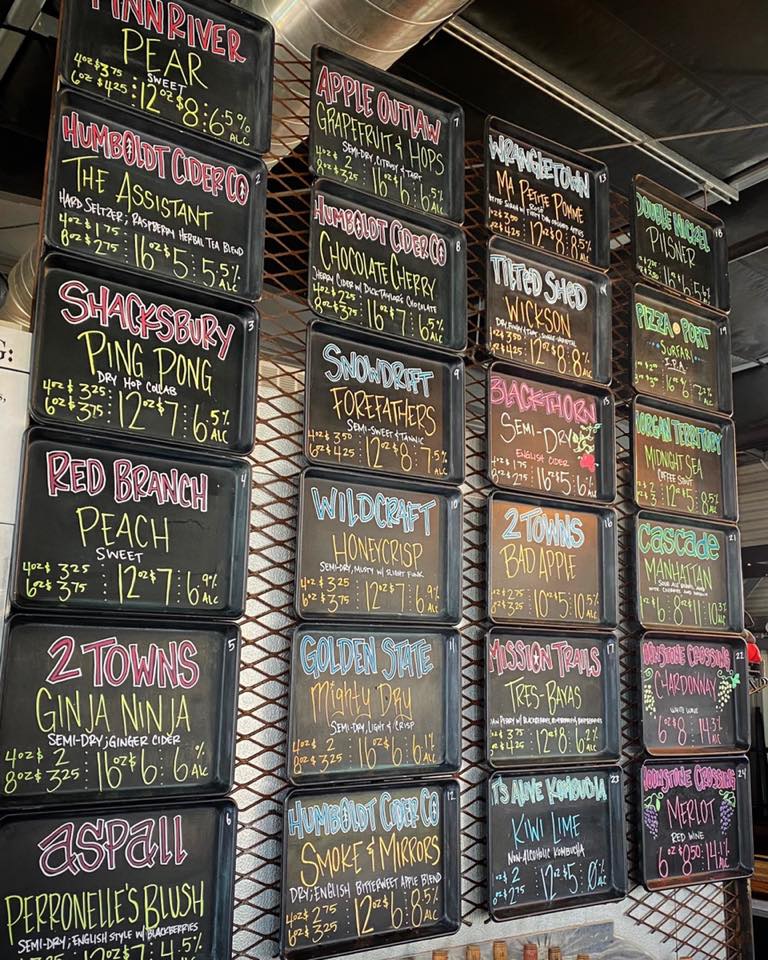 FINNRIVER
PEAR
SWEET
4oz $3.75
6oz $4.25 : 12oz $8 : 6.5% ALC
2
HUMBOLDT CIDER CO
THE ASSISTANT
HARD SELTZER; RASPBERRY HERBAL TEA BLEND
4oz $1.75
8oz $2.75 : 16oz $5 : 5.5% ALC
3
SHACKSBURY
PING PONG
DRY HOP COLLAB
4oz $3.25
6oz $3.75 : 12oz $7 : 6.5% ALC
4
RED BRANCH
PEACH
SWEET
4oz $3.25
6oz $3.75 : 12oz $7 : 6.9% ALC
5
2 TOWNS
GINJA NINJA
SEMI-DRY; GINGER CIDER
4oz $2
8oz $3.25 : 16oz $6 : 6% ALC
6
ASPALL
PERRONELLE'S BLUSH
SEMI-DRY; ENGLISH STYLE W/ BLACKBERRIES
7
APPLE OUTLAW
GRAPEFRUIT & HOPS
SEMI-DRY, CITRUSY & TART
4oz $2
8oz $3.25 : 16oz $6 : 6.5% ALC
8
HUMBOLDT CIDER CO
CHOCOLATE CHERRY
CHERRY CIDER W/ DICK TAYLOR'S CHOCOLATE
4oz $2.25
8oz $3.75 : 16oz $7 : 6.5% ALC
9
SNOWDRIFT
FOREFATHERS
SEMI-SWEET & TANNIC
4oz $3.50
6oz $4.25 : 12oz $8 : 7.5% ALC
10
WILDCRAFT
HONEYCRISP
SEMI-DRY, MUSTY W/ SLIGHT FUNK
4oz $3.25
6oz $3.75 : 12oz $7 : 6.9% ALC
11
GOLDEN STATE
MIGHTY DRY
SEMI-DRY, LIGHT & CRISP
4oz $2
8oz $3.25 : 16oz $6 : 6.1% ALC
12
HUMBOLDT CIDER CO
SMOKE & MIRRORS
DRY; ENGLISH BITTERSWEET APPLE BLEND
4oz $2.75
6oz $3.25 : 12oz $6 : 8.5% ALC
13
WRANGLETOWN
MA PETITE POMME
12oz $8 : 8.5%
TILTED SHED
WICKSON
12oz $8 : 8%
15
BLACKTHORN
SEMI-DRY
ENGLISH CIDER
16oz $5 : 6%
16
2 TOWNS
BAD APPLE
10oz $5 : 10.5% ALC
17
MISSION TRAILS
TRES-BAYAS
12oz $8 : 6.2% ALC
23
IT'S ALIVE KOMBUCHA
KIWI LIME
NON-ALCOHOLIC KOMBUCHA
12oz $5 : 0% ALC
18
DOUBLE NICKEL
PILSNER
19
PIZZA PORT
SURFARI
MORGAN TERRITORY
MIDNIGHT SEA
COFFEE STOUT
12oz $5 : 8.5%
21
CASCADE
MANHATTAN
22
MOONSTONE CROSSING
CHARDONNAY
WHITE WINE
6oz $8 : 14.3% ALC
24
MOONSTONE CROSSING
MERLOT
RED WINE
6oz $8.50 : 14.1% ALC